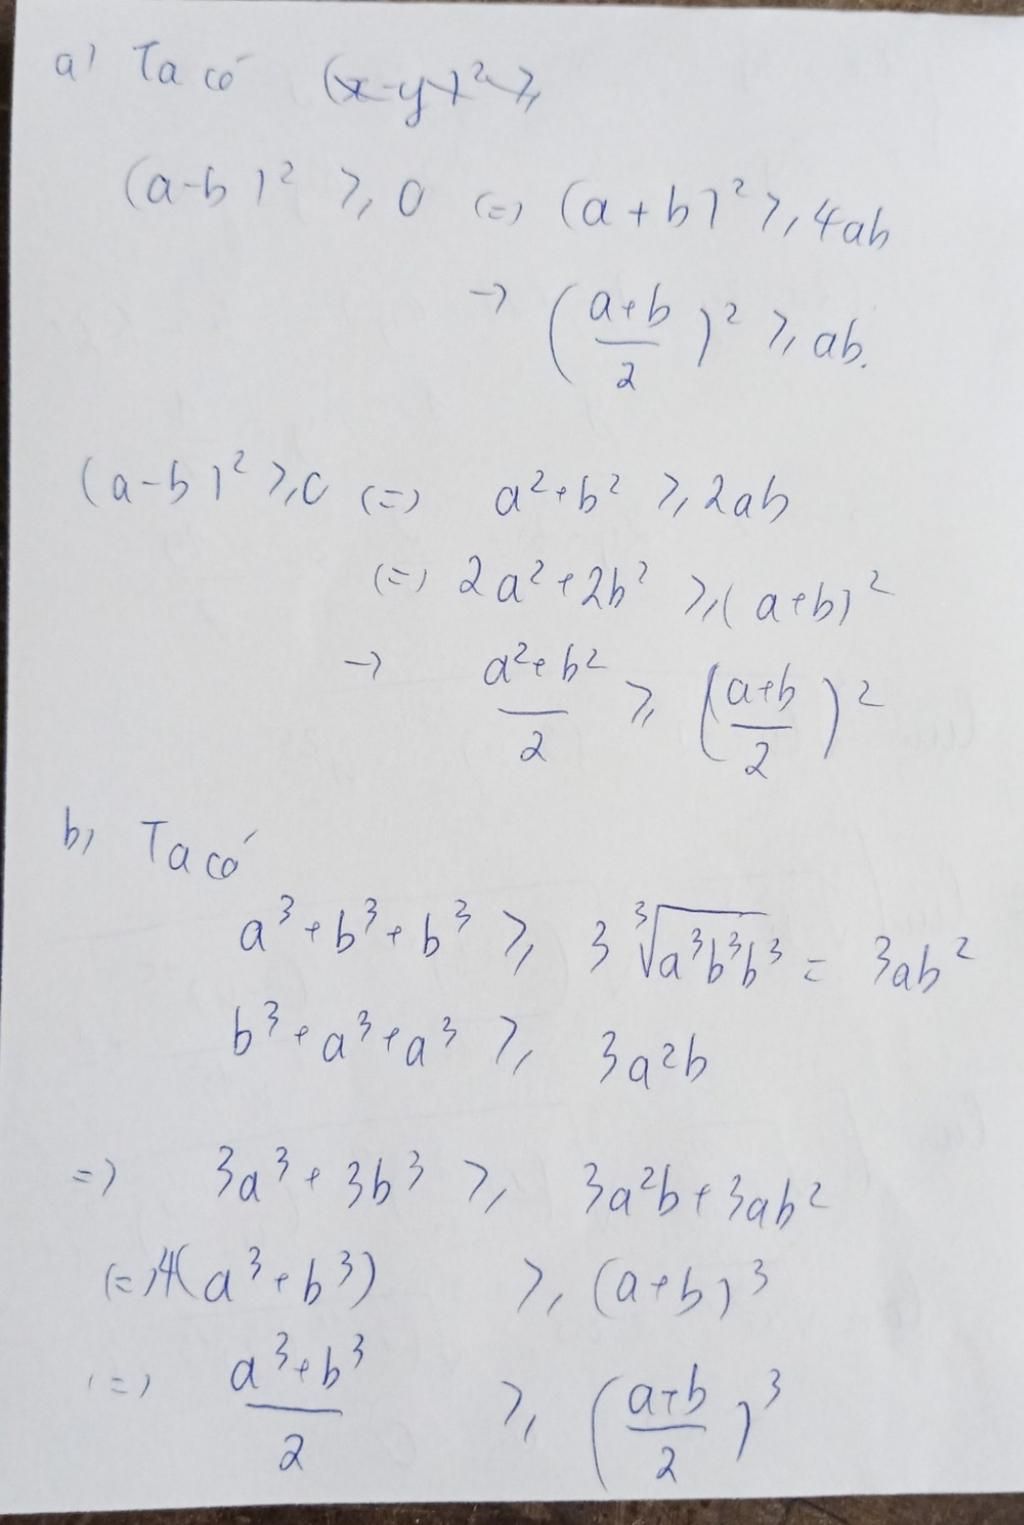 a) Ta có (x-y)² ≥
(a-b)² ≥ 0 (=) (a+b)² ≥ 4ab
→ (\frac{a+b}{2})² ≥ ab.
(a-b)² ≥ 0 (=) a²+b² ≥ 2ab
(=) 2a²+2b² ≥ (a+b)²
→ \frac{a²+b²}{2} ≥ (\frac{a+b}{2})²
b) Ta có
a³+b³+b³ ≥ 3∛(a³b³b³) = 3ab²
b³+a³+a³ ≥ 3a²b
=) 3a³+3b³ ≥ 3a²b+3ab²
(=) 4(a³+b³) ≥ (a+b)³
(=) \frac{a³+b³}{2} ≥ (\frac{a+b}{2})³